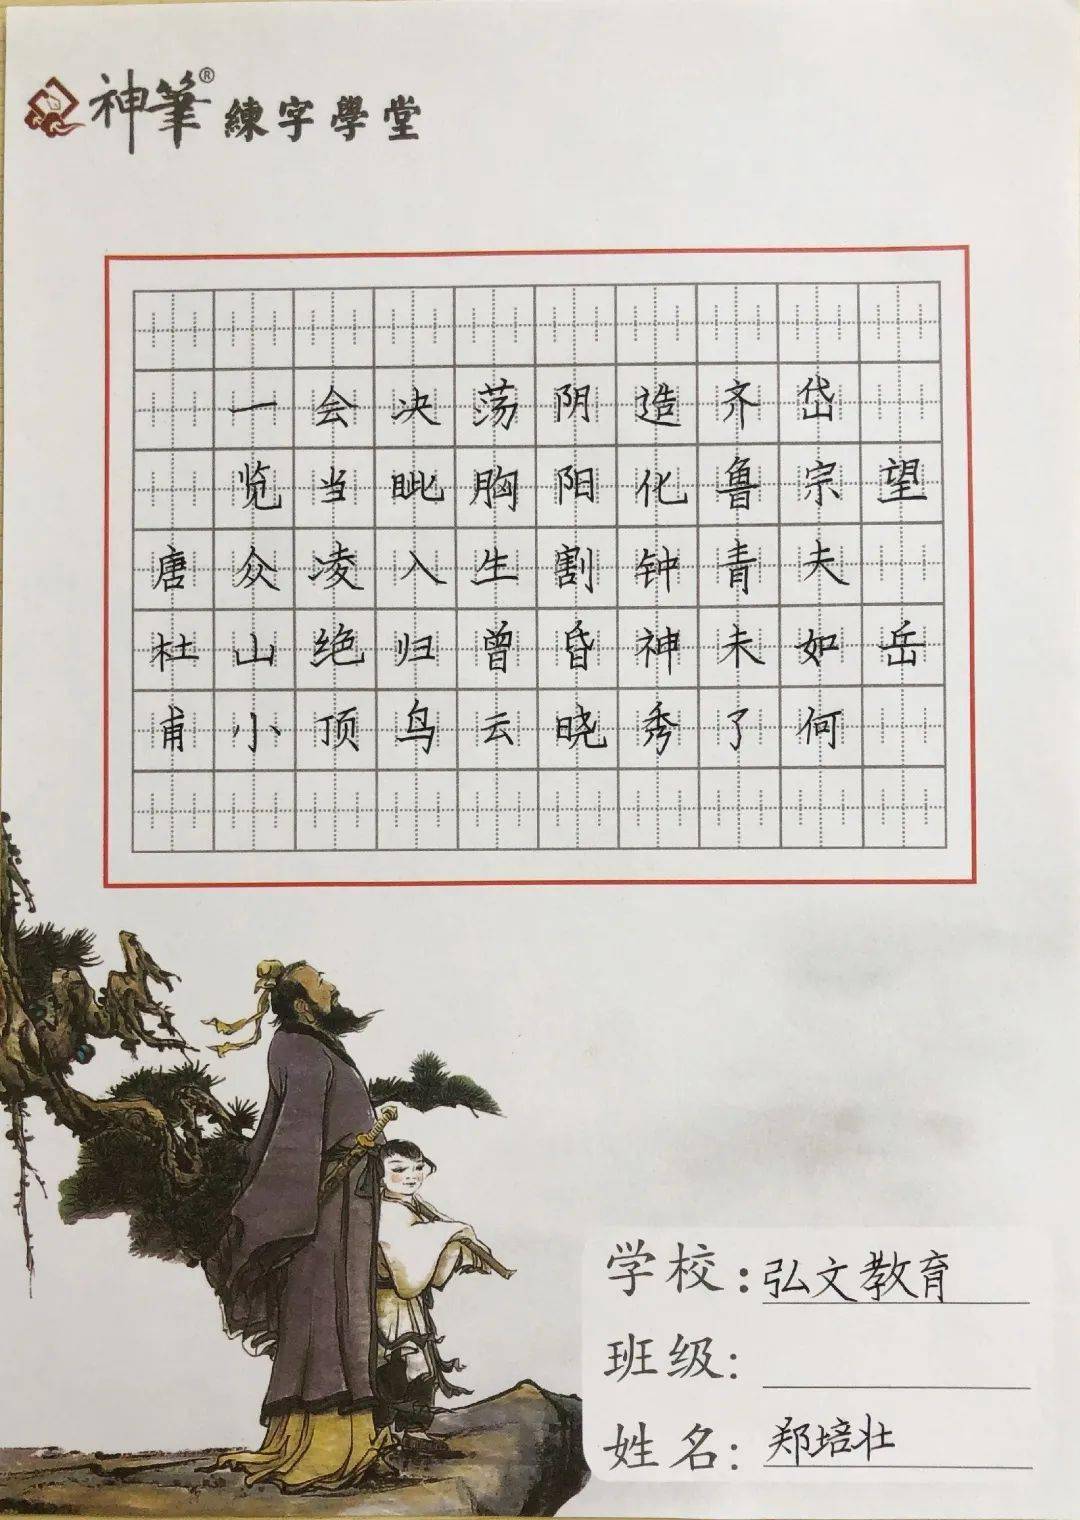 神筆® 練字學堂
望岳
岱宗夫如何
齐鲁青未了
造化钟神秀
阴阳割昏晓
荡胸生曾云
决眦入归鸟
会当凌绝顶
一览众山小
唐杜甫
学校：弘文教育
班级：
姓名：郑培壮